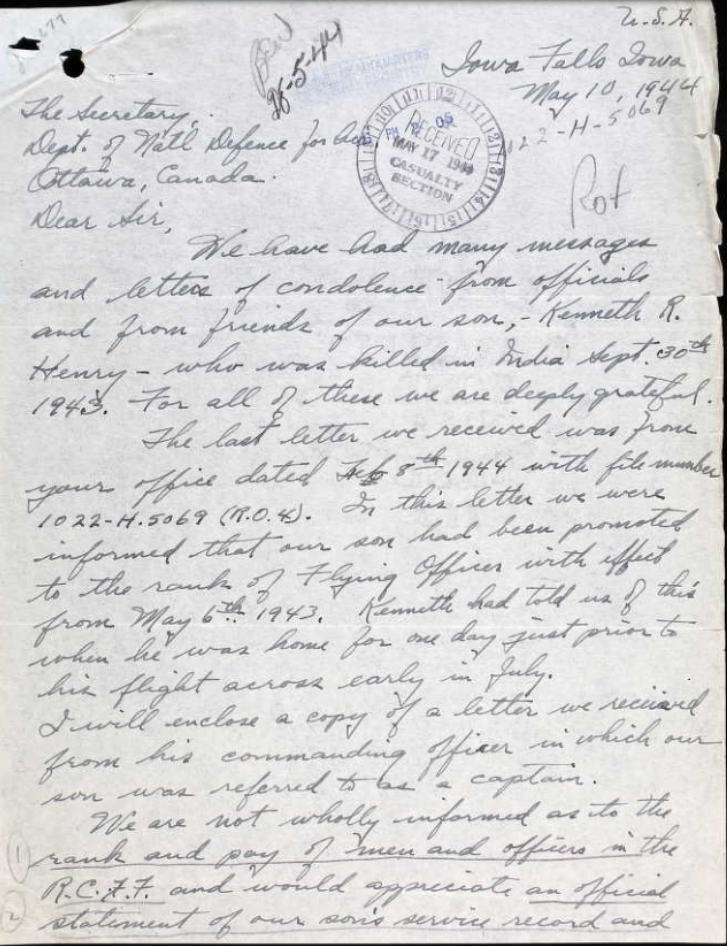 U.S.A.
Iowa Falls Iowa
May 10, 1944
1022-H-5069
26-5-44
RECEIVED
MAY 17 1944
CASUALTY
SECTION
Rof
The Secretary,
Dept. of Nat'l Defence for Air
Ottawa, Canada.
Dear Sir,
We have had many messages
and letters of condolence from officials
and from friends of our son, - Kenneth R.
Henry - who was killed in India Sept. 30th
1943. For all of these we are deeply grateful.
The last letter we received was from
your office dated Feb 8th 1944 with file number
1022-H.5069 (R.O.4). In this letter we were
informed that our son had been promoted
to the rank of Flying Officer with effect
from May 6th 1943. Kenneth had told us of this
when he was home for one day just prior to
his flight across early in July.
I will enclose a copy of a letter we received
from his commanding officer in which our
son was referred to as a captain.
We are not wholly informed as to the
1 rank and pay of men and officers in the
R.C.F.F. and would appreciate an official
2 statement of our son's service record and